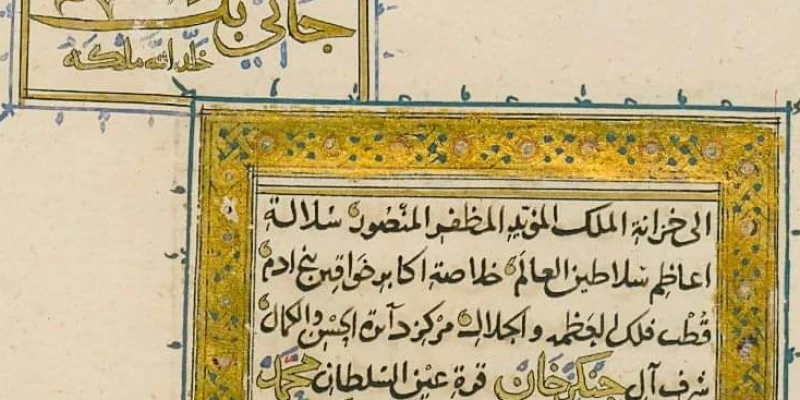 جاني بك
خلد الله ملكه
الى خزانة الملك المؤيد المظفر المنصور سلالة
اعاظم سلاطين العالم خلاصة اكابر خواقين بني ادم
قطب فلك العظمه والجلال مركز دآئرة الحسن والكمال
شرف آل جنكز خان قرة عين السلطان محمد